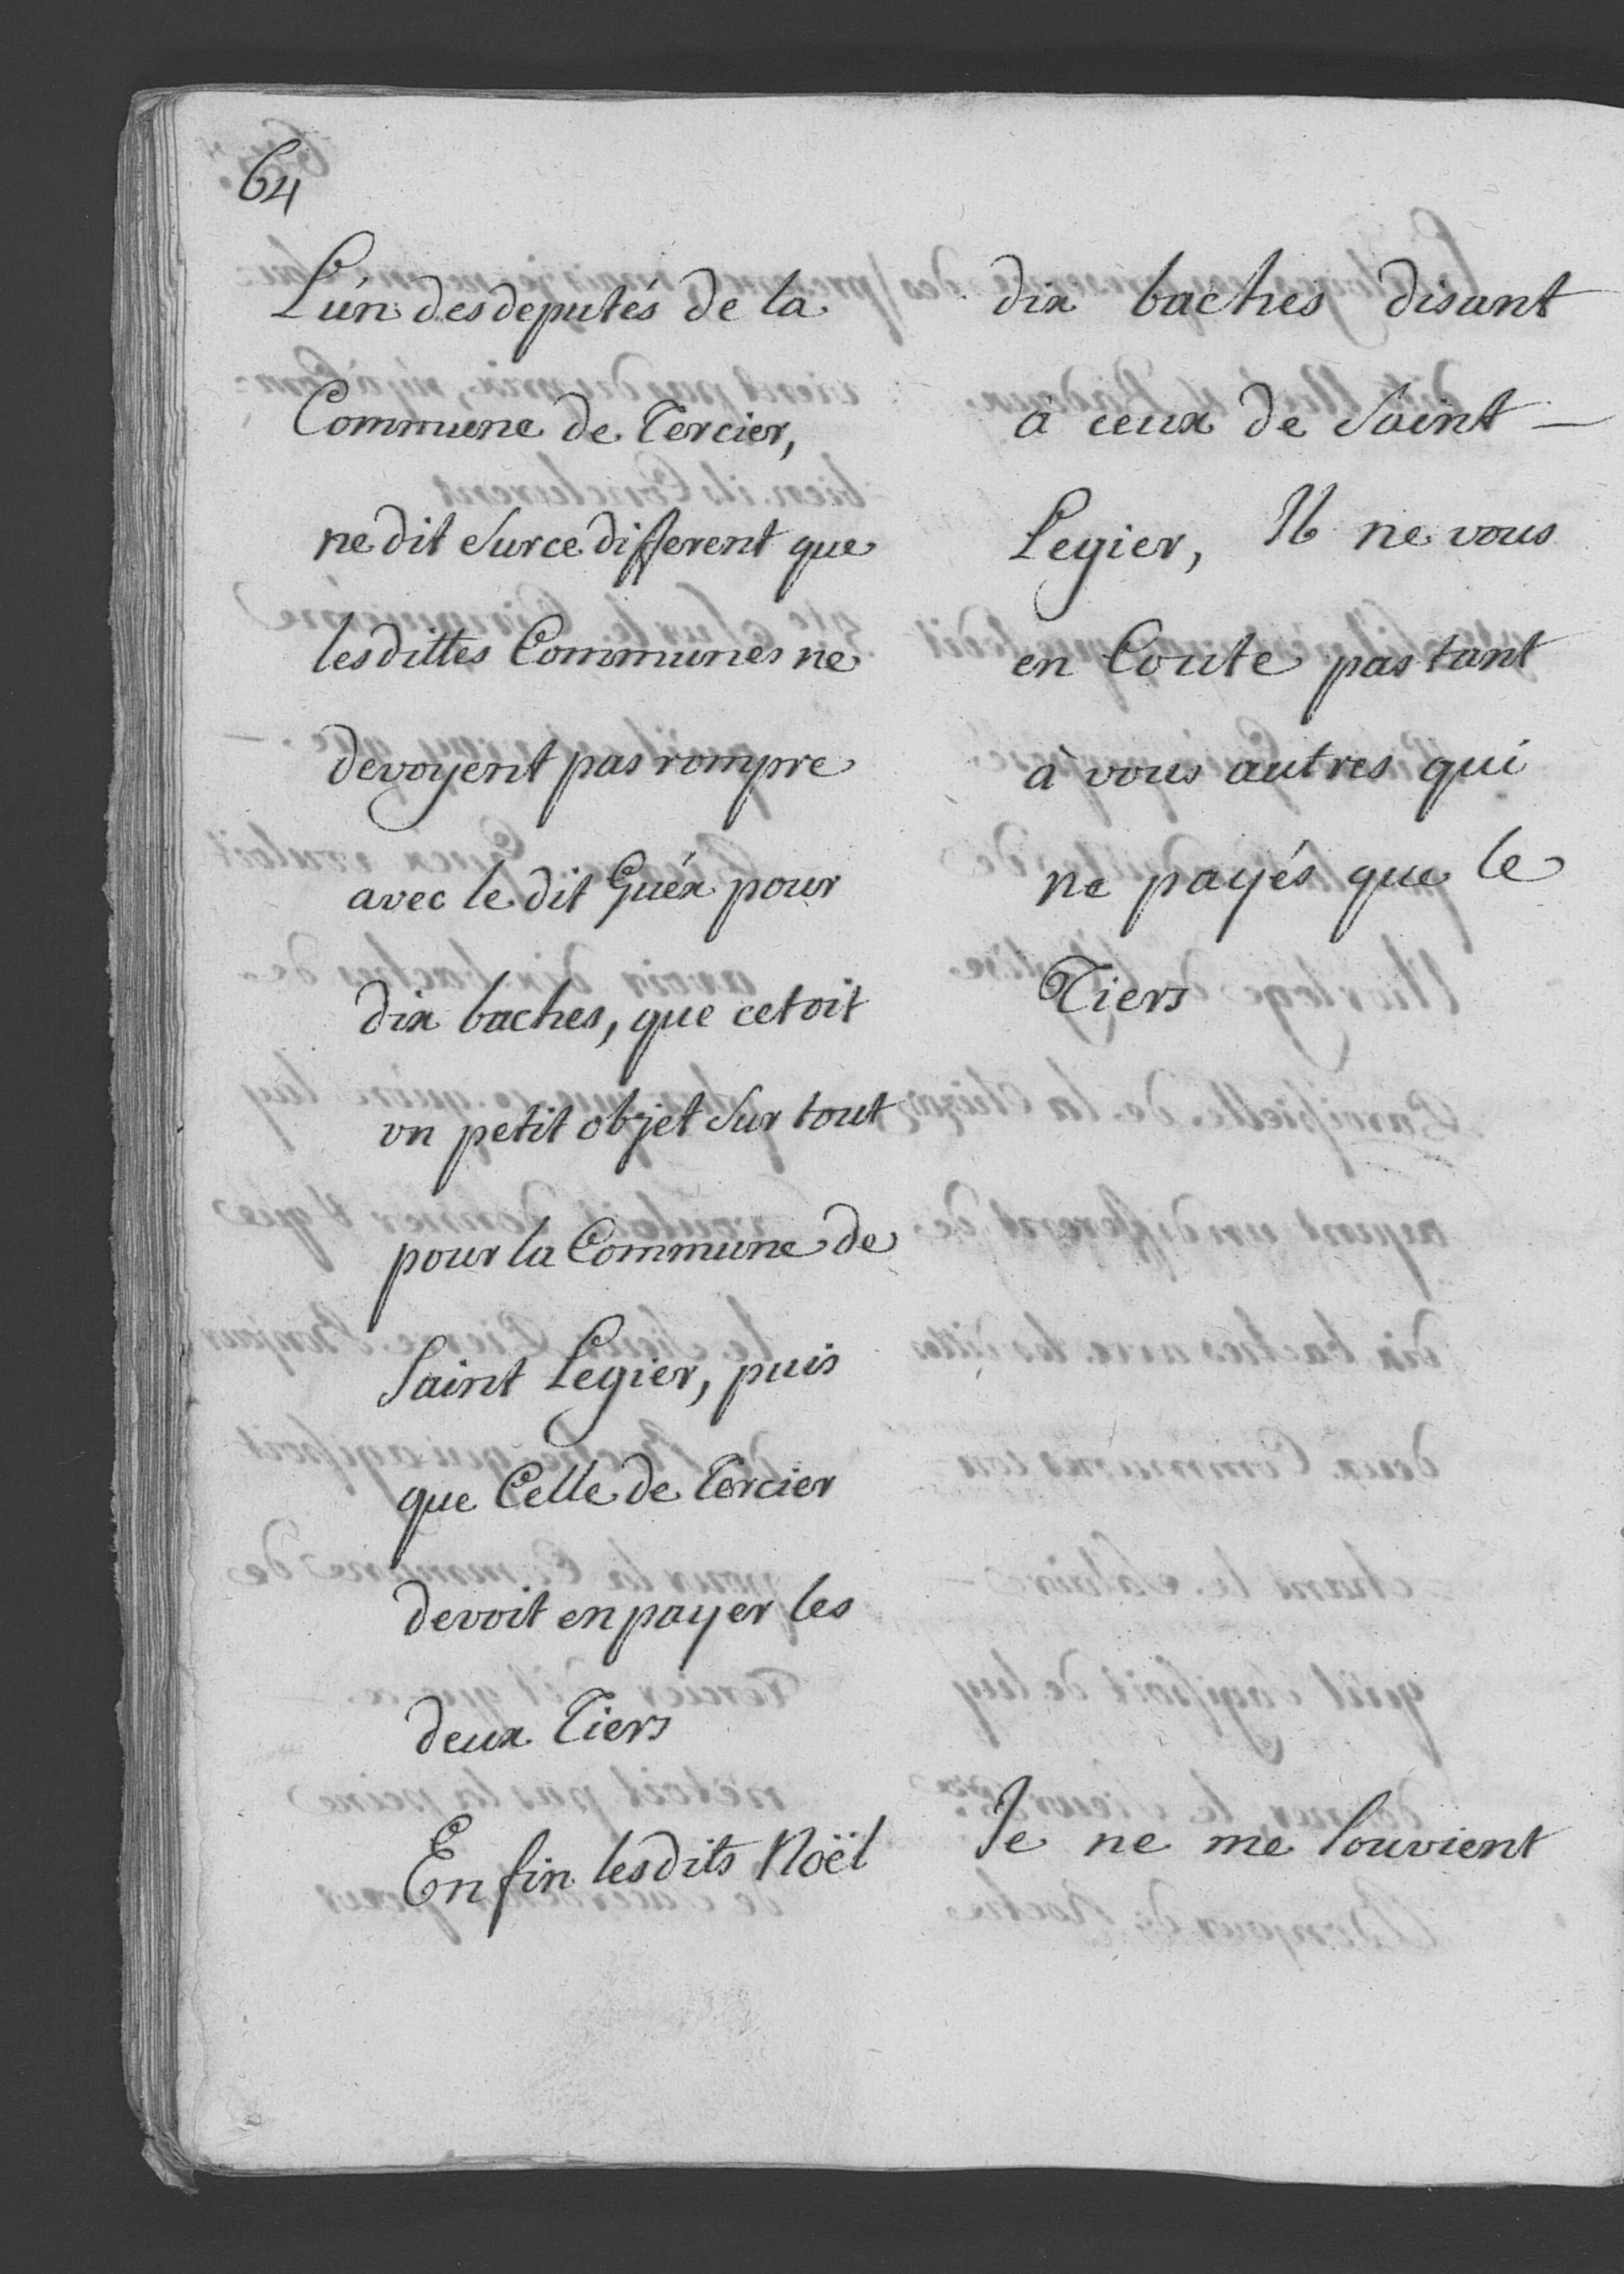 64
L'un des deputés de la
Commune de Tercier,
ne dit Sur ce different que
lesdittes Communes ne
devoyent pas rompre
avec le dit Guéx pour
dix baches, que cetoit
un petit objet Sur tout
pour la Commune de
Saint Legier, puis
que Celle de Tercier
devoit en payer les
deux Tiers
En fin lesdits Noël
dix baches disant
à ceux de Saint
Legier, Il ne vous
en Coute pas tant
à vous autres qui
ne payés que le
Tiers
Je ne me Souvient